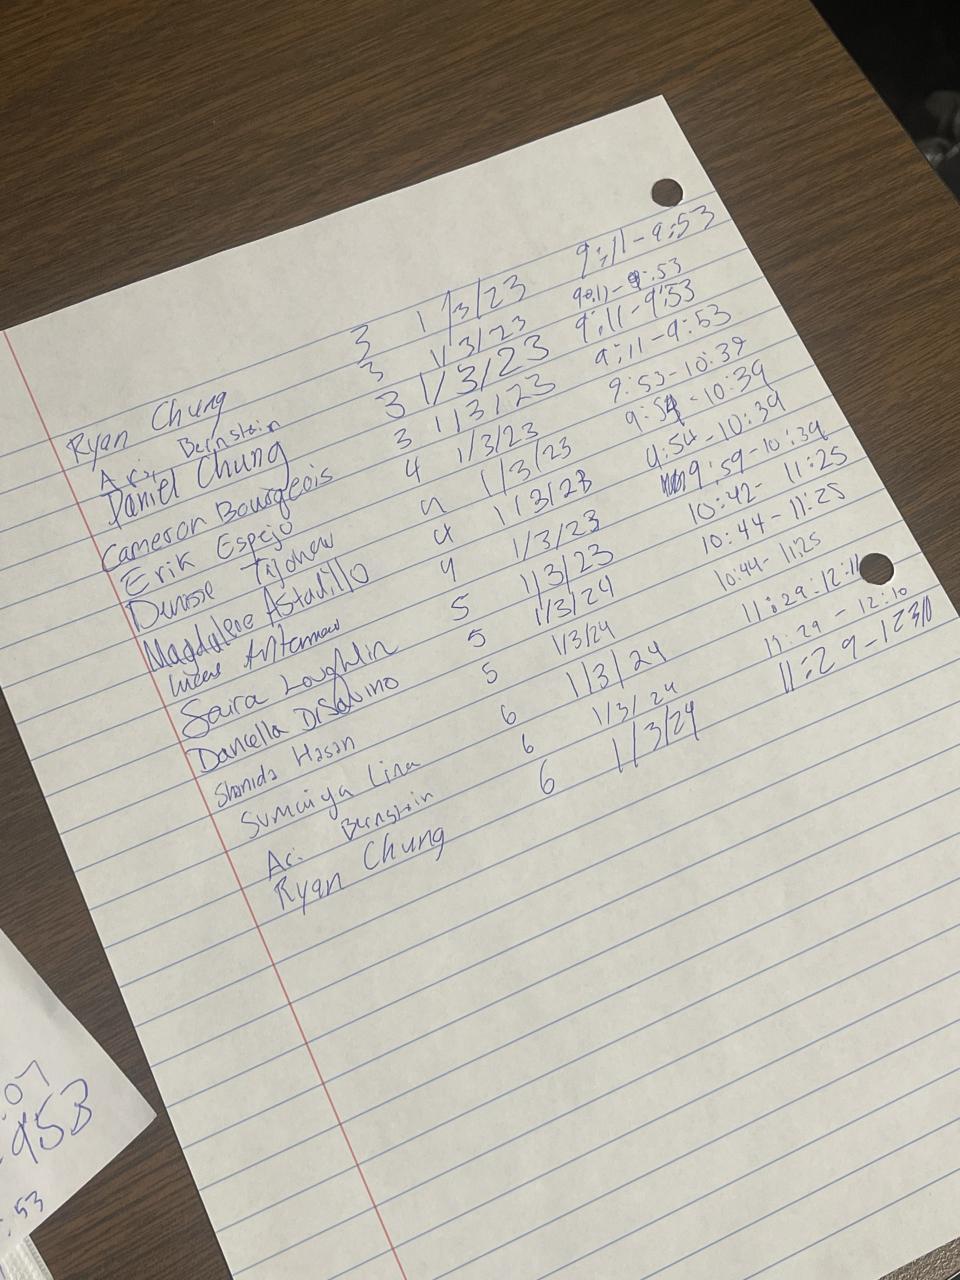 Ryan Chung 3 1/3/23 9:11-9:53
Ari Bernstein 3 1/3/23 9:11-9:53
Daniel Chung 3 1/3/23 9:11-9:53
Cameron Bourgeois 3 1/3/23 9:11-9:53
Erik Espejo 4 1/3/23 9:53-10:39
Denisse 4 1/3/23 9:54-10:39
Magdalene Astadillo 4 1/3/23 9:54-10:39
4 1/3/23 9:59-10:39
Saira Loughlin 5 1/3/23 10:42-11:25
Daniella DiSalvino 5 1/3/24 10:44-11:25
Shanida Hasan 5 1/3/24 10:44-11:25
Sumaiya Lina 6 1/3/24 11:29-12:11
Ari Bernstein 6 1/3/24 11:29-12:10
Ryan Chung 6 1/3/24 11:29-1230
07
953
:53